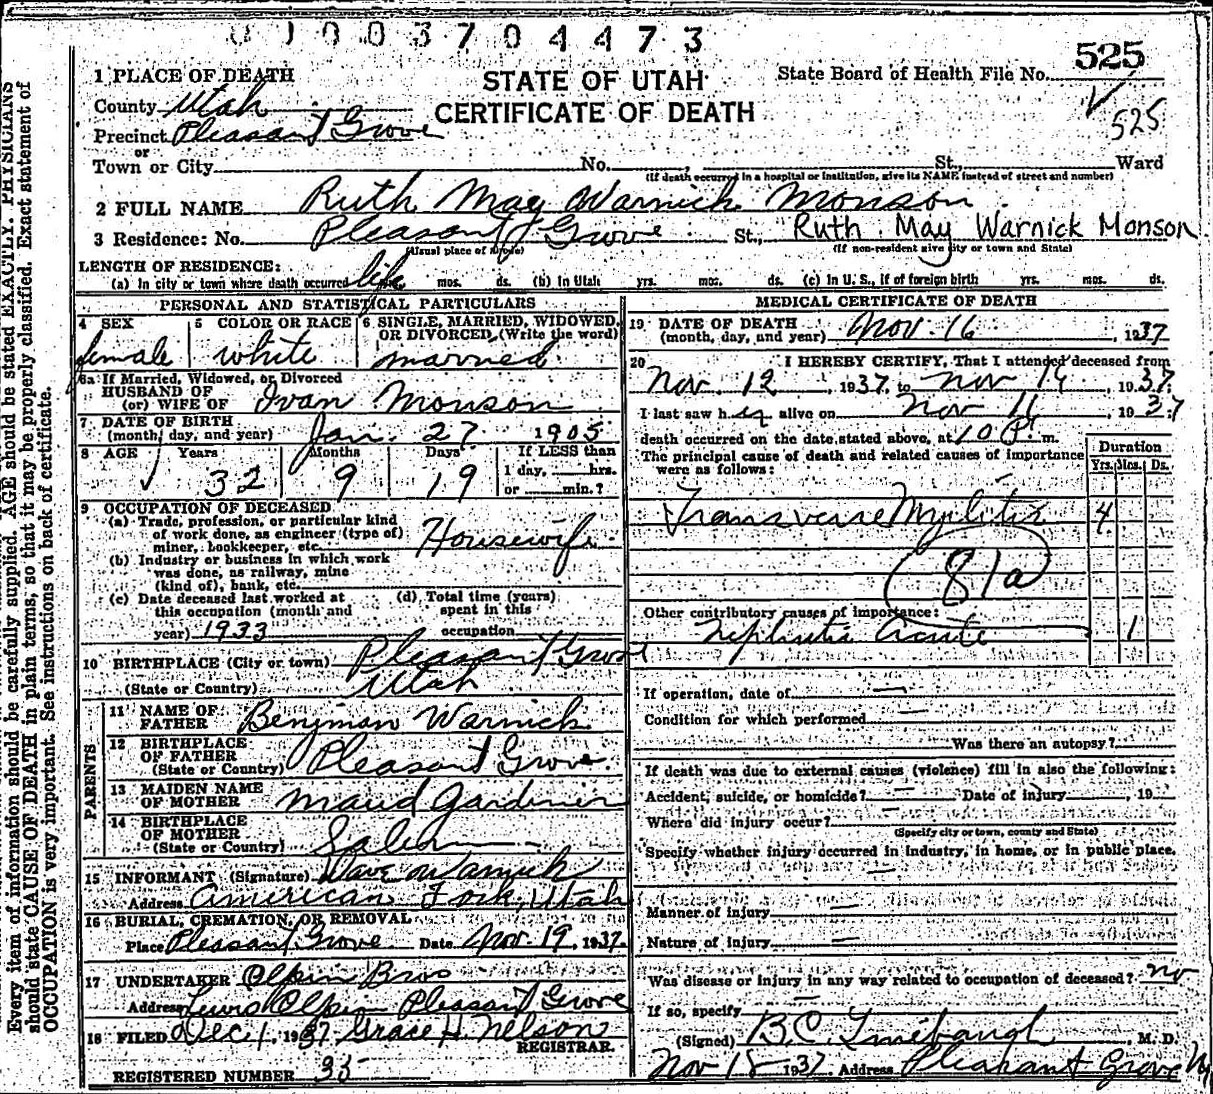 0 1 0 0 3 7 0 4 4 7 3
STATE OF UTAH
CERTIFICATE OF DEATH
State Board of Health File No. 525
525
1 PLACE OF DEATH
County Utah
Precinct Pleasant Grove
or
Town or City No. St., Ward
(If death occurred in a hospital or institution, give its NAME instead of street and number)
2 FULL NAME Ruth May Warnick Monson
3 Residence: No. Pleasant Grove St., Ruth May Warnick Monson
(Usual place of abode) (If non-resident give city or town and State)
LENGTH OF RESIDENCE:
(a) In city or town where death occurred life mos. ds. (b) In Utah yrs. mos. ds. (c) In U. S., if of foreign birth yrs. mos. ds.
PERSONAL AND STATISTICAL PARTICULARS
4 SEX 5 COLOR OR RACE 6 SINGLE, MARRIED, WIDOWED,
OR DIVORCED, (Write the word)
female white married
6a If Married, Widowed, or Divorced
HUSBAND OF
(or) WIFE OF Ivan Monson
7 DATE OF BIRTH
(month, day, and year) Jan. 27 1905
8 AGE Years Months Days If LESS than
1 day, hrs.
or min.?
32 9 19
9 OCCUPATION OF DECEASED
(a) Trade, profession, or particular kind
of work done, as engineer (type of)
miner, bookkeeper, etc. Housewife
(b) Industry or business in which work
was done, as railway, mine
(kind of), bank, etc.
(c) Date deceased last worked at (d) Total time (years)
this occupation (month and spent in this
year) 1933 occupation
10 BIRTHPLACE (City or town) Pleasant Grove
(State or Country) Utah
PARENTS
11 NAME OF
FATHER Benjman Warnick
12 BIRTHPLACE
OF FATHER
(State or Country) Pleasant Grove.
13 MAIDEN NAME
OF MOTHER Maud Gardiner
14 BIRTHPLACE
OF MOTHER
(State or Country) Salem
15 INFORMANT (Signature) Dave Warnick
Address American Fork, Utah
16 BURIAL, CREMATION, OR REMOVAL
Place Pleasant Grove Date Nov. 19, 1937.
17 UNDERTAKER Olpin Bros
Address Lewis Olpin Pleasant Grove
18 FILED Dec. 1, 1937. Grace H. Nelson
REGISTRAR.
REGISTERED NUMBER 35
MEDICAL CERTIFICATE OF DEATH
19 DATE OF DEATH
(month, day, and year) Nov. 16, 1937
20 I HEREBY CERTIFY, That I attended deceased from
Nov. 12, 1937. to Nov 16, 1937.
I last saw her alive on Nov 16, 1937
death occurred on the date stated above, at 10 P. m.
The principal cause of death and related causes of importance
were as follows:
Duration
Yrs. Mos. Ds.
Transverse Mylitis 4
81a
Other contributory causes of importance:
Nephritis Acute 1
If operation, date of —
Condition for which performed —
Was there an autopsy?
If death was due to external causes (violence) fill in also the following:
Accident, suicide, or homicide? — Date of injury, 19
Where did injury occur? —
(Specify city or town, county and State)
Specify whether injury occurred in industry, in home, or in public place.
—
Manner of injury —
Nature of injury —
Was disease or injury in any way related to occupation of deceased? no
If so, specify —
(Signed) B.C. Linebaugh, M. D.
Nov 18 1937. Address Pleasant Grove
Every item of information should be carefully supplied. AGE should be stated EXACTLY. PHYSICIANS
should state CAUSE OF DEATH in plain terms, so that it may be properly classified. Exact statement of
OCCUPATION is very important. See instructions on back of certificate.